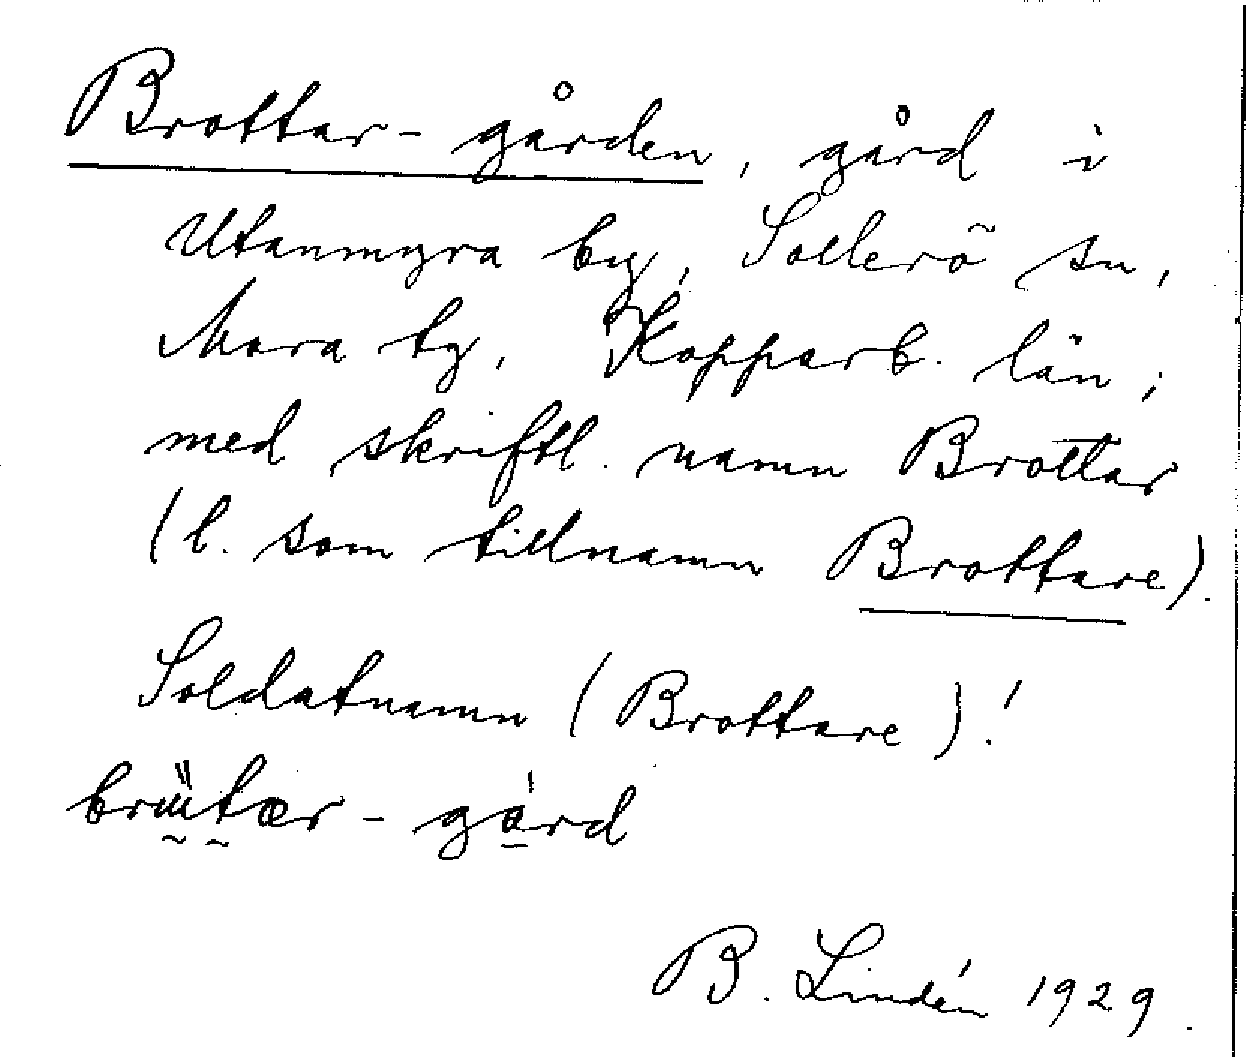 Brottar-gården, gård i
Utanmyra by, Sollerö sn,
Mora tg, Kopparb. län;
med skriftl. namn Brottar
(l. som tillnamn Brottare).
Soldatnamn (Brottare)!
-gård
B. Lindén 1929.